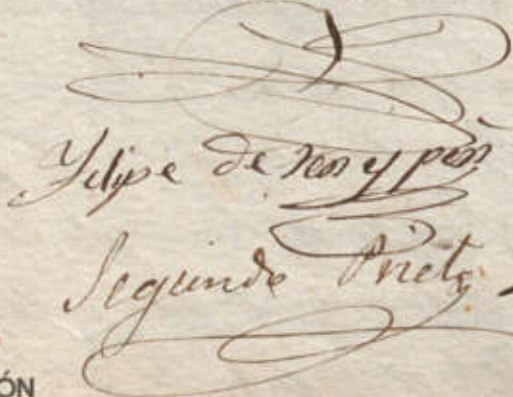 Felipe de ros y pon
Segundo Prieto
ÓN